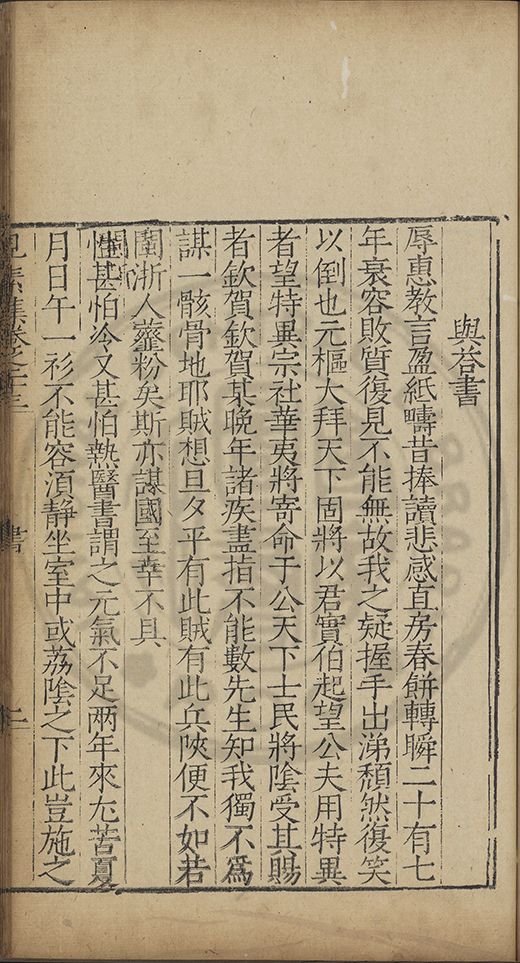 與荅書
辱惠教言盈紙疇昔捧讀悲感直房春餅轉瞬二十有七
年衰容敗質復見不能無故我之疑握手出涕頹然復笑
以倒也元樞大拜天下固將以君實伯起望公夫用特異
者望特異宗社華夷將寄命于公天下士民將陰受其賜
者欽賀欽賀某晚年諸疾盡指不能數先生知我獨不為
謀一骸骨地耶賊想旦夕平有此賊有此兵陝便不如若
閩浙人虀粉矣斯亦謀國至幸不具
性甚怕冷又甚怕熱醫書謂之元氣不足兩年來尢苦夏
月日午一衫不能容湏靜坐室中或荔陰之下此豈施之
見素集卷之二十三
書
二